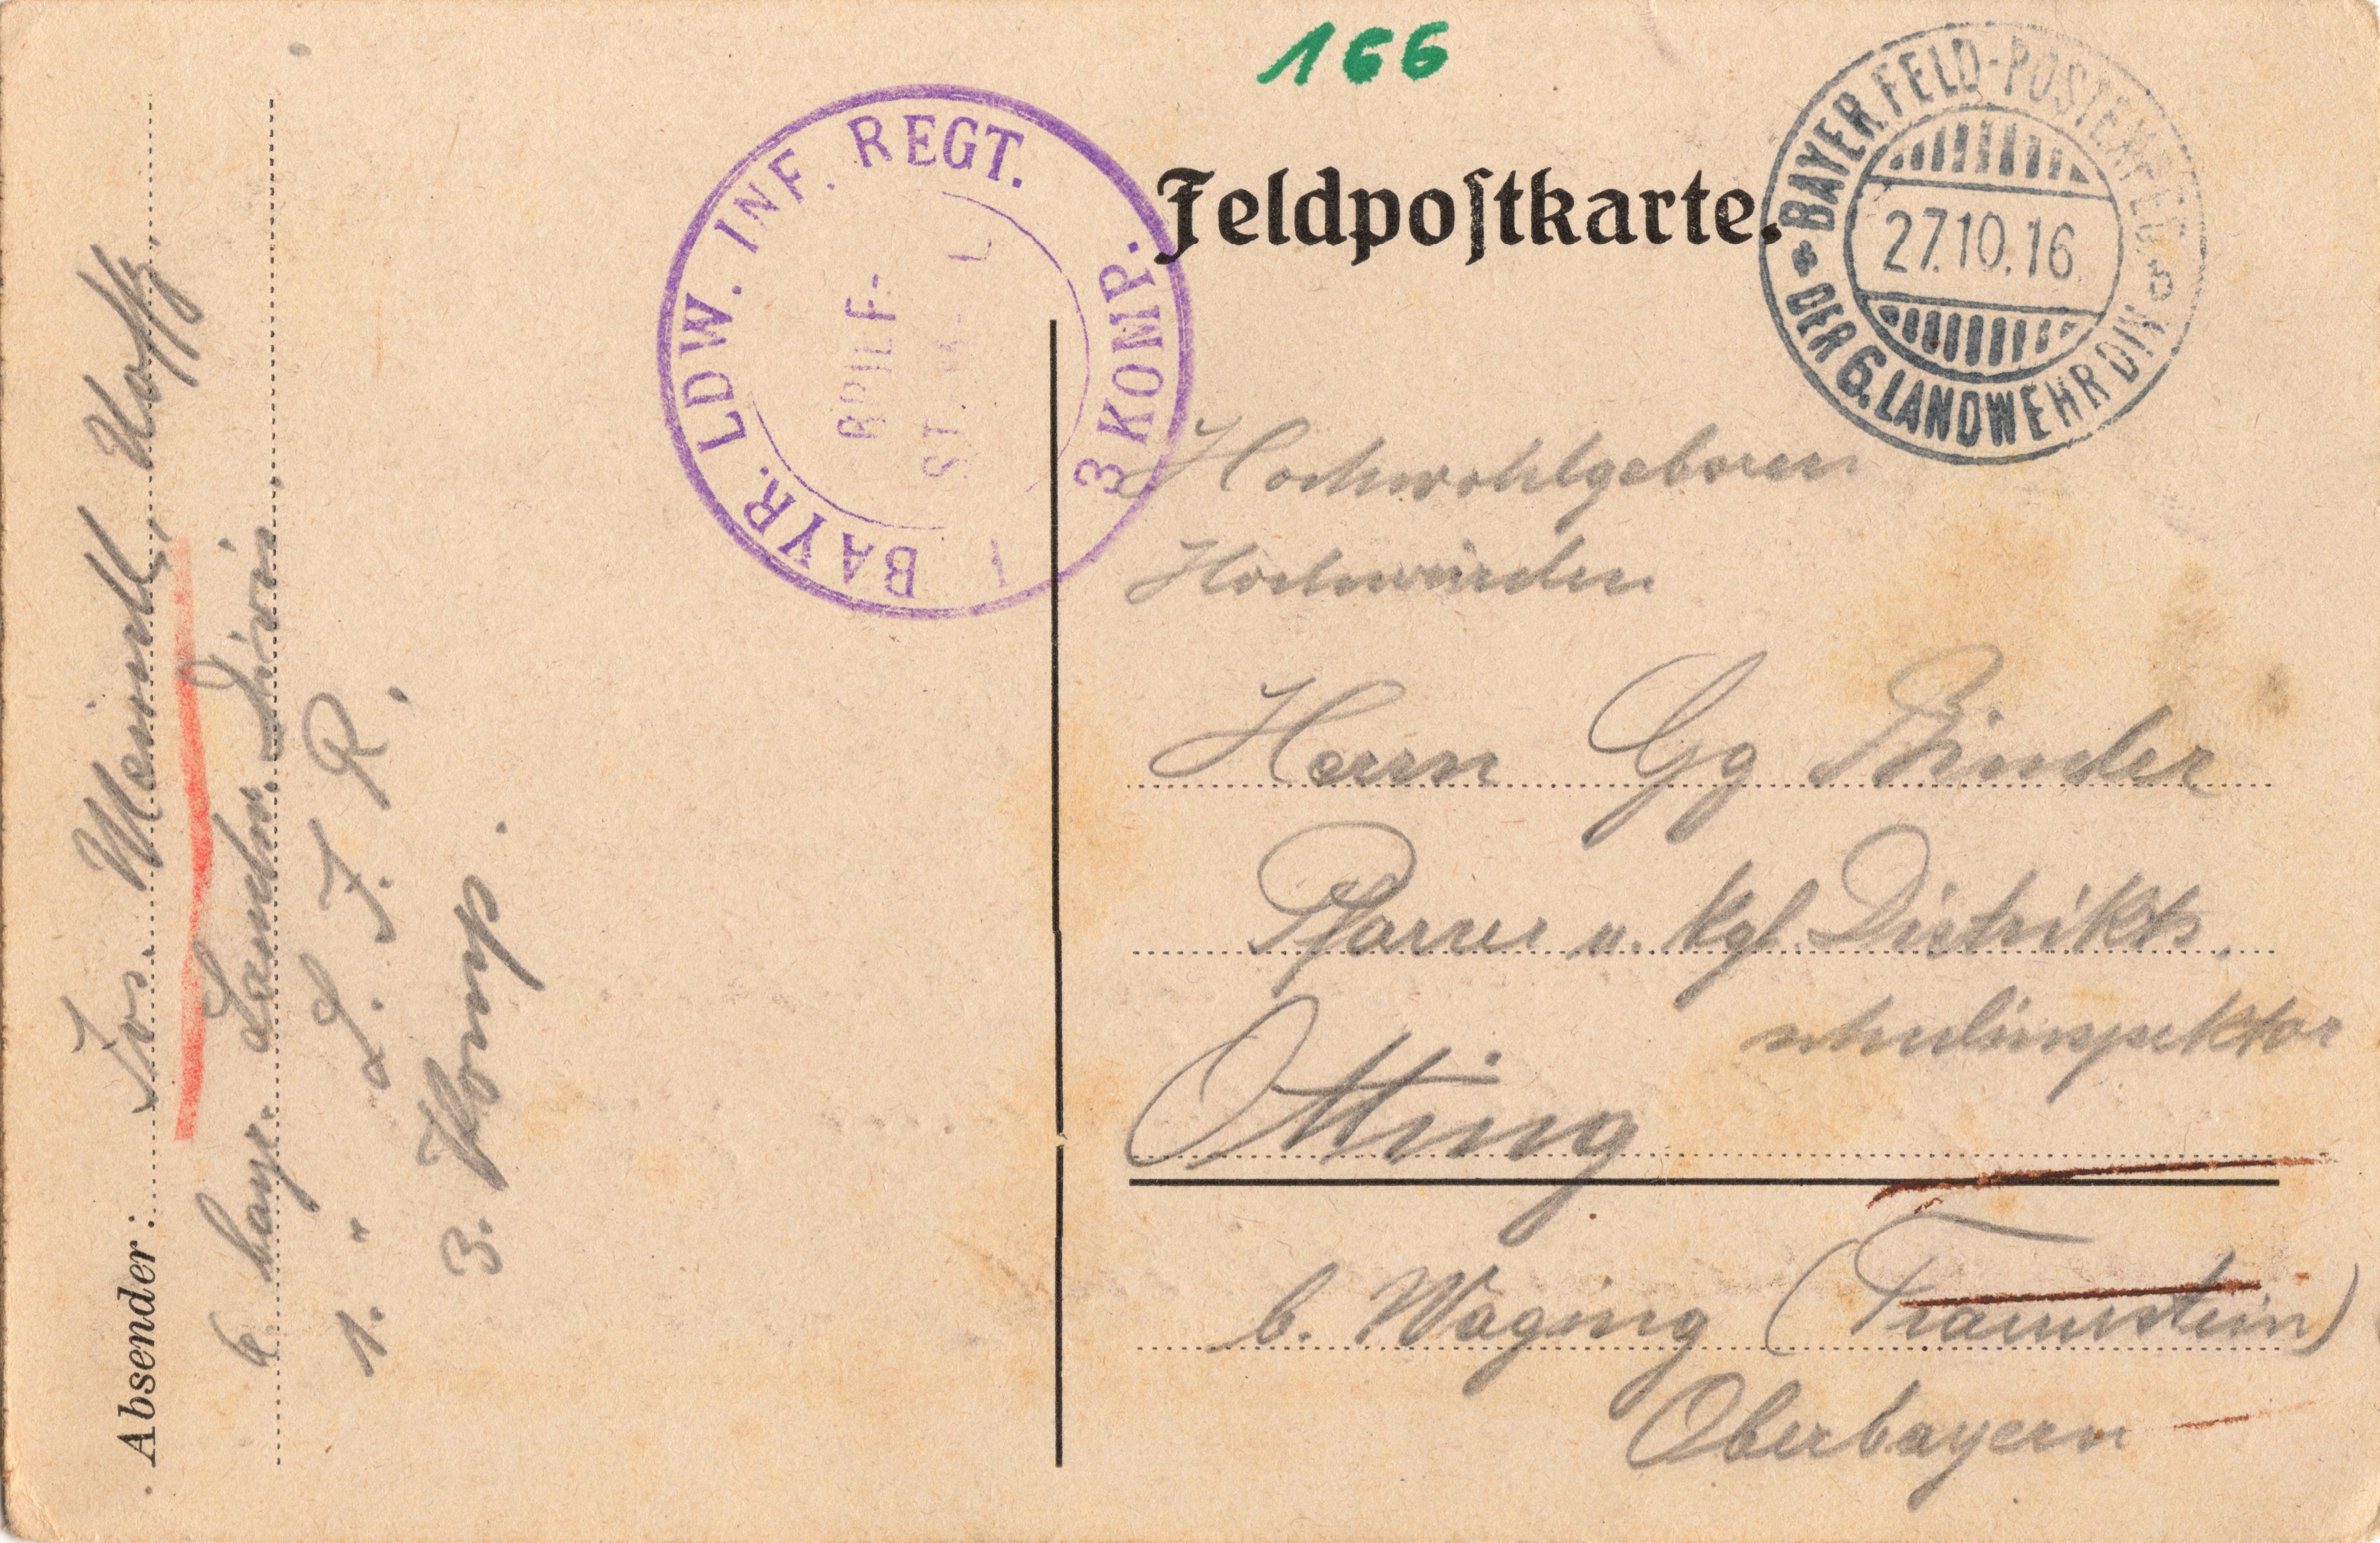 166
Feldpostkarte.
BAYR. LDW. INF. REGT.
3 KOMP.
BAYER. FELD-POSTEXPED.
27.10.16
DER 6. LANDWEHR DIV.
Hochwohlgeboren
Hochwürden
Herrn Gg Binder
Pfarrer u. Kgl. Distrikts
schulinspektor
Otting
b. Waging (Traunstein)
Oberbayern
Absender: Jos. Meindl,
6 bayr. Landw. Divis.
1. " L. I. R.
3. Komp.